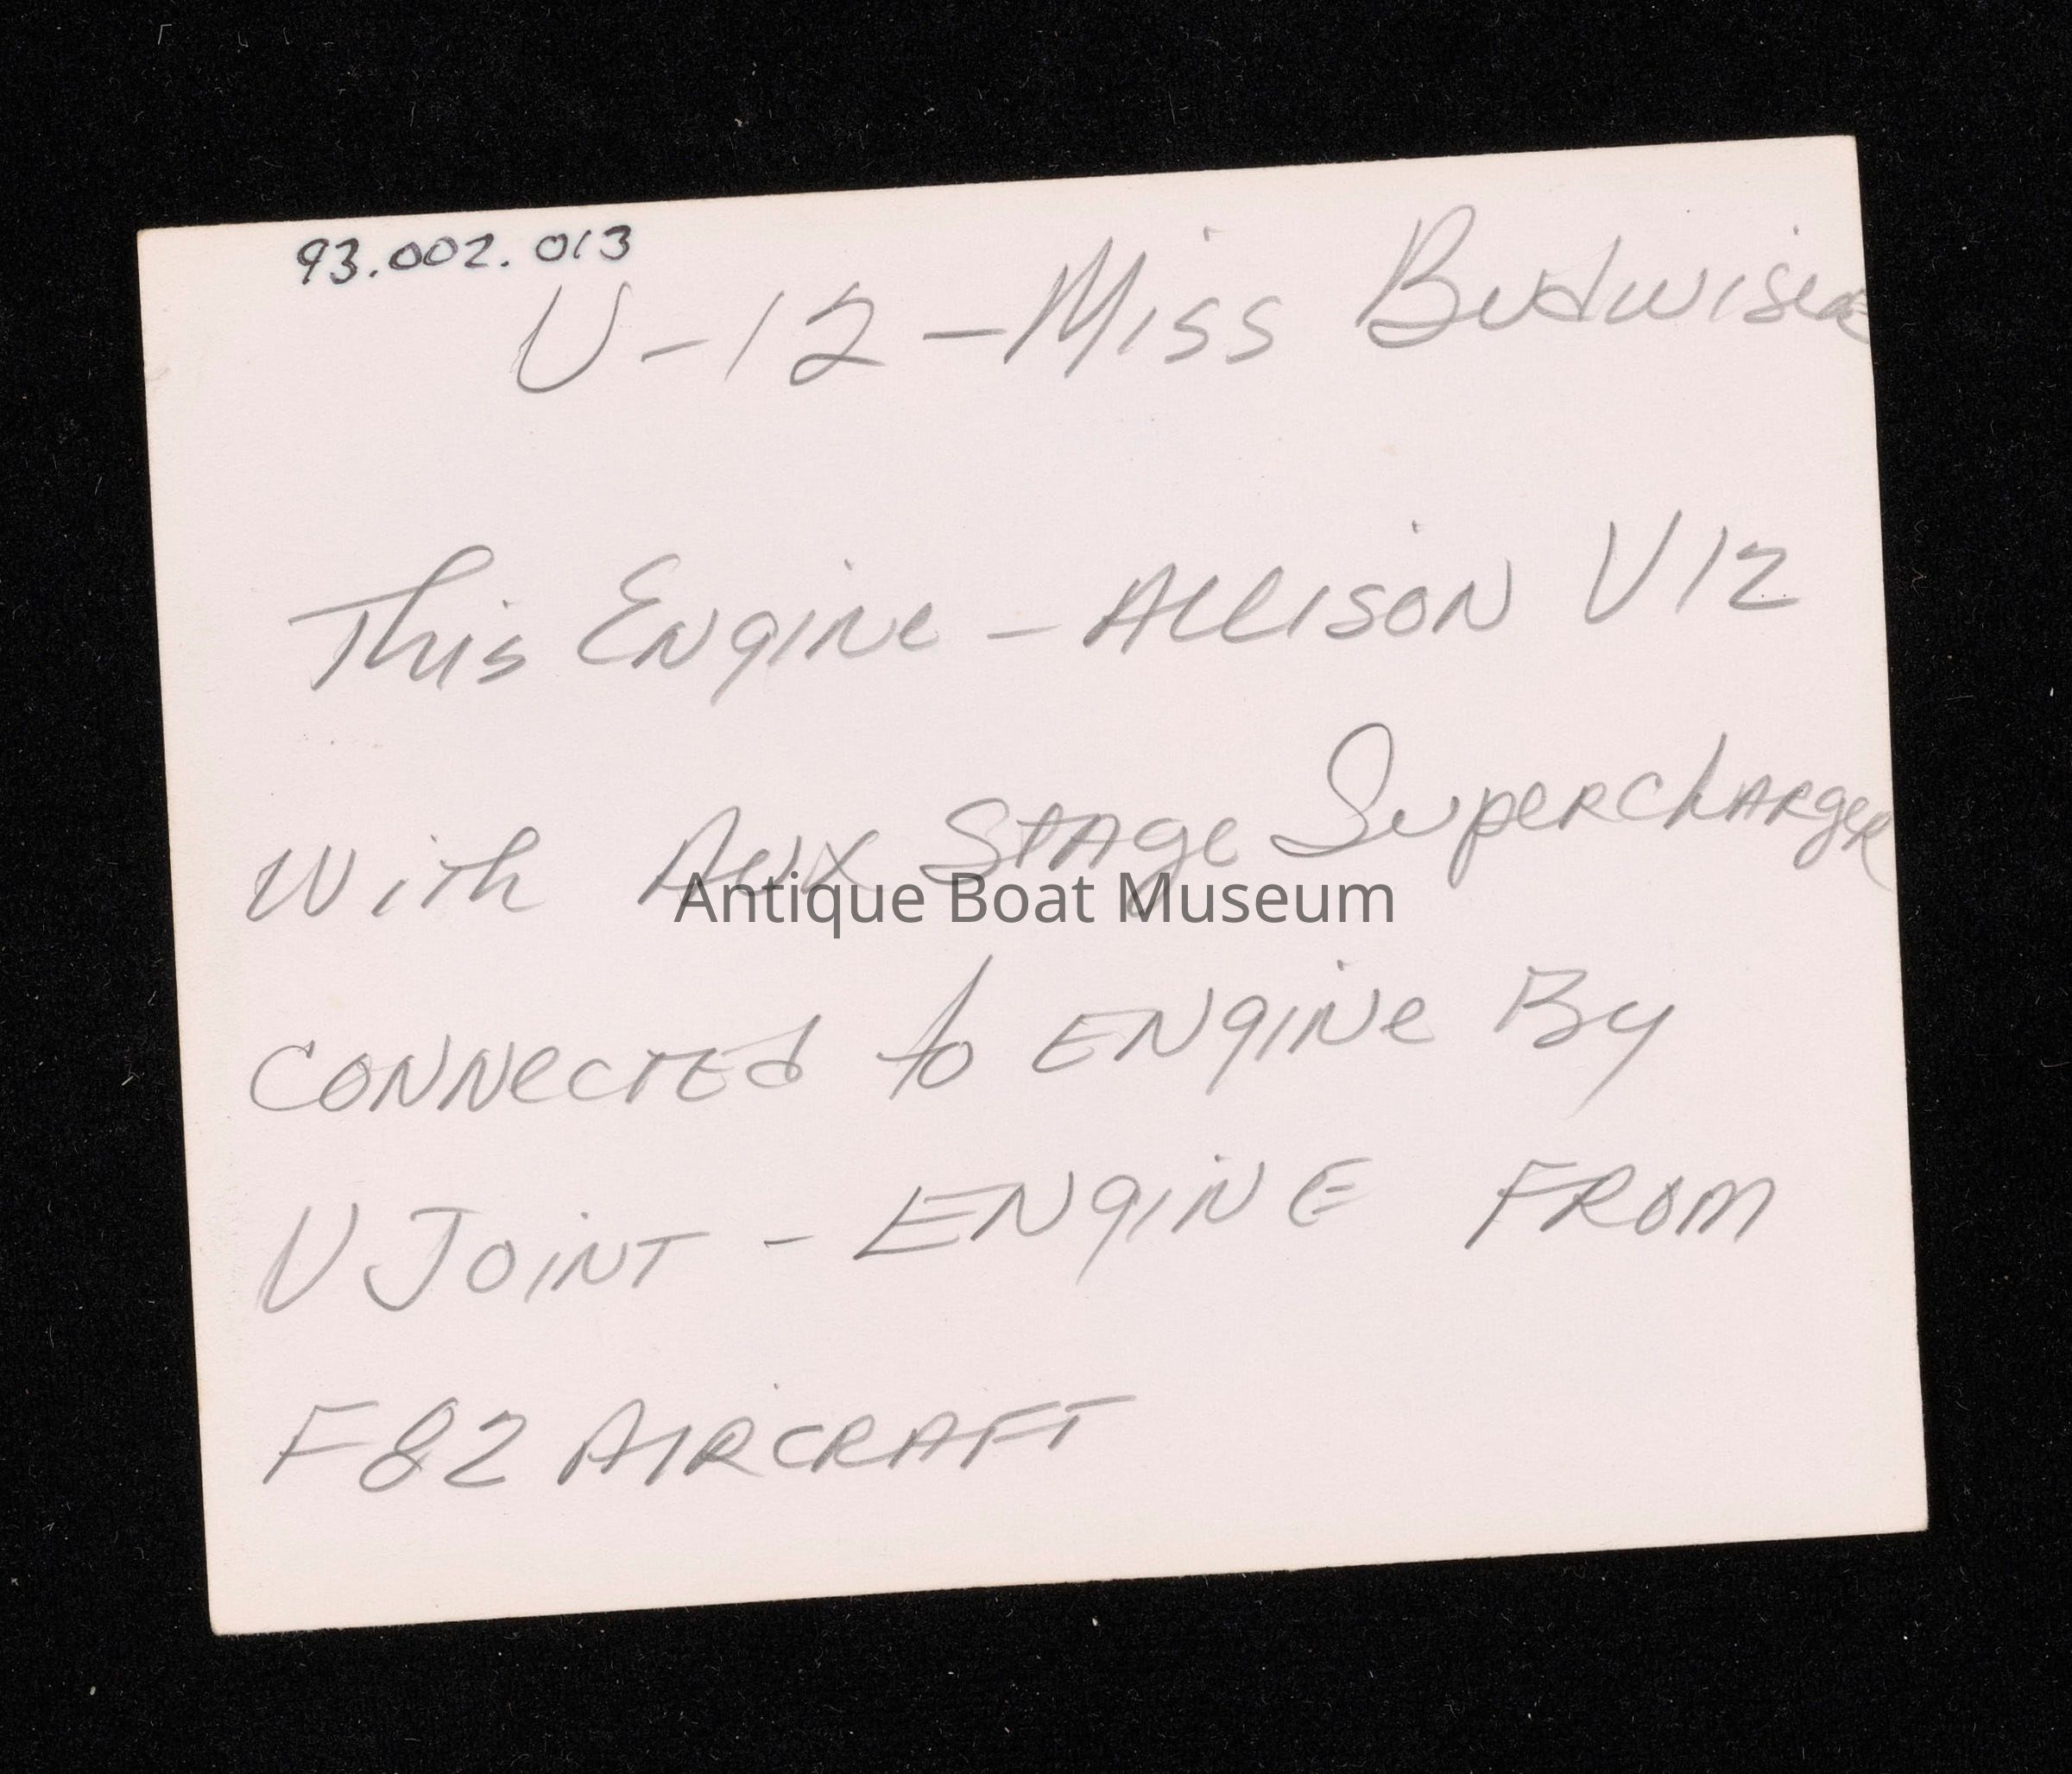 93.002.013
U-12-Miss Budwiser
This Engine - Allison V12
With Aux Stage Supercharger
Antique Boat Museum
Connected to Engine By
U Joint - Engine From
F82 Aircraft